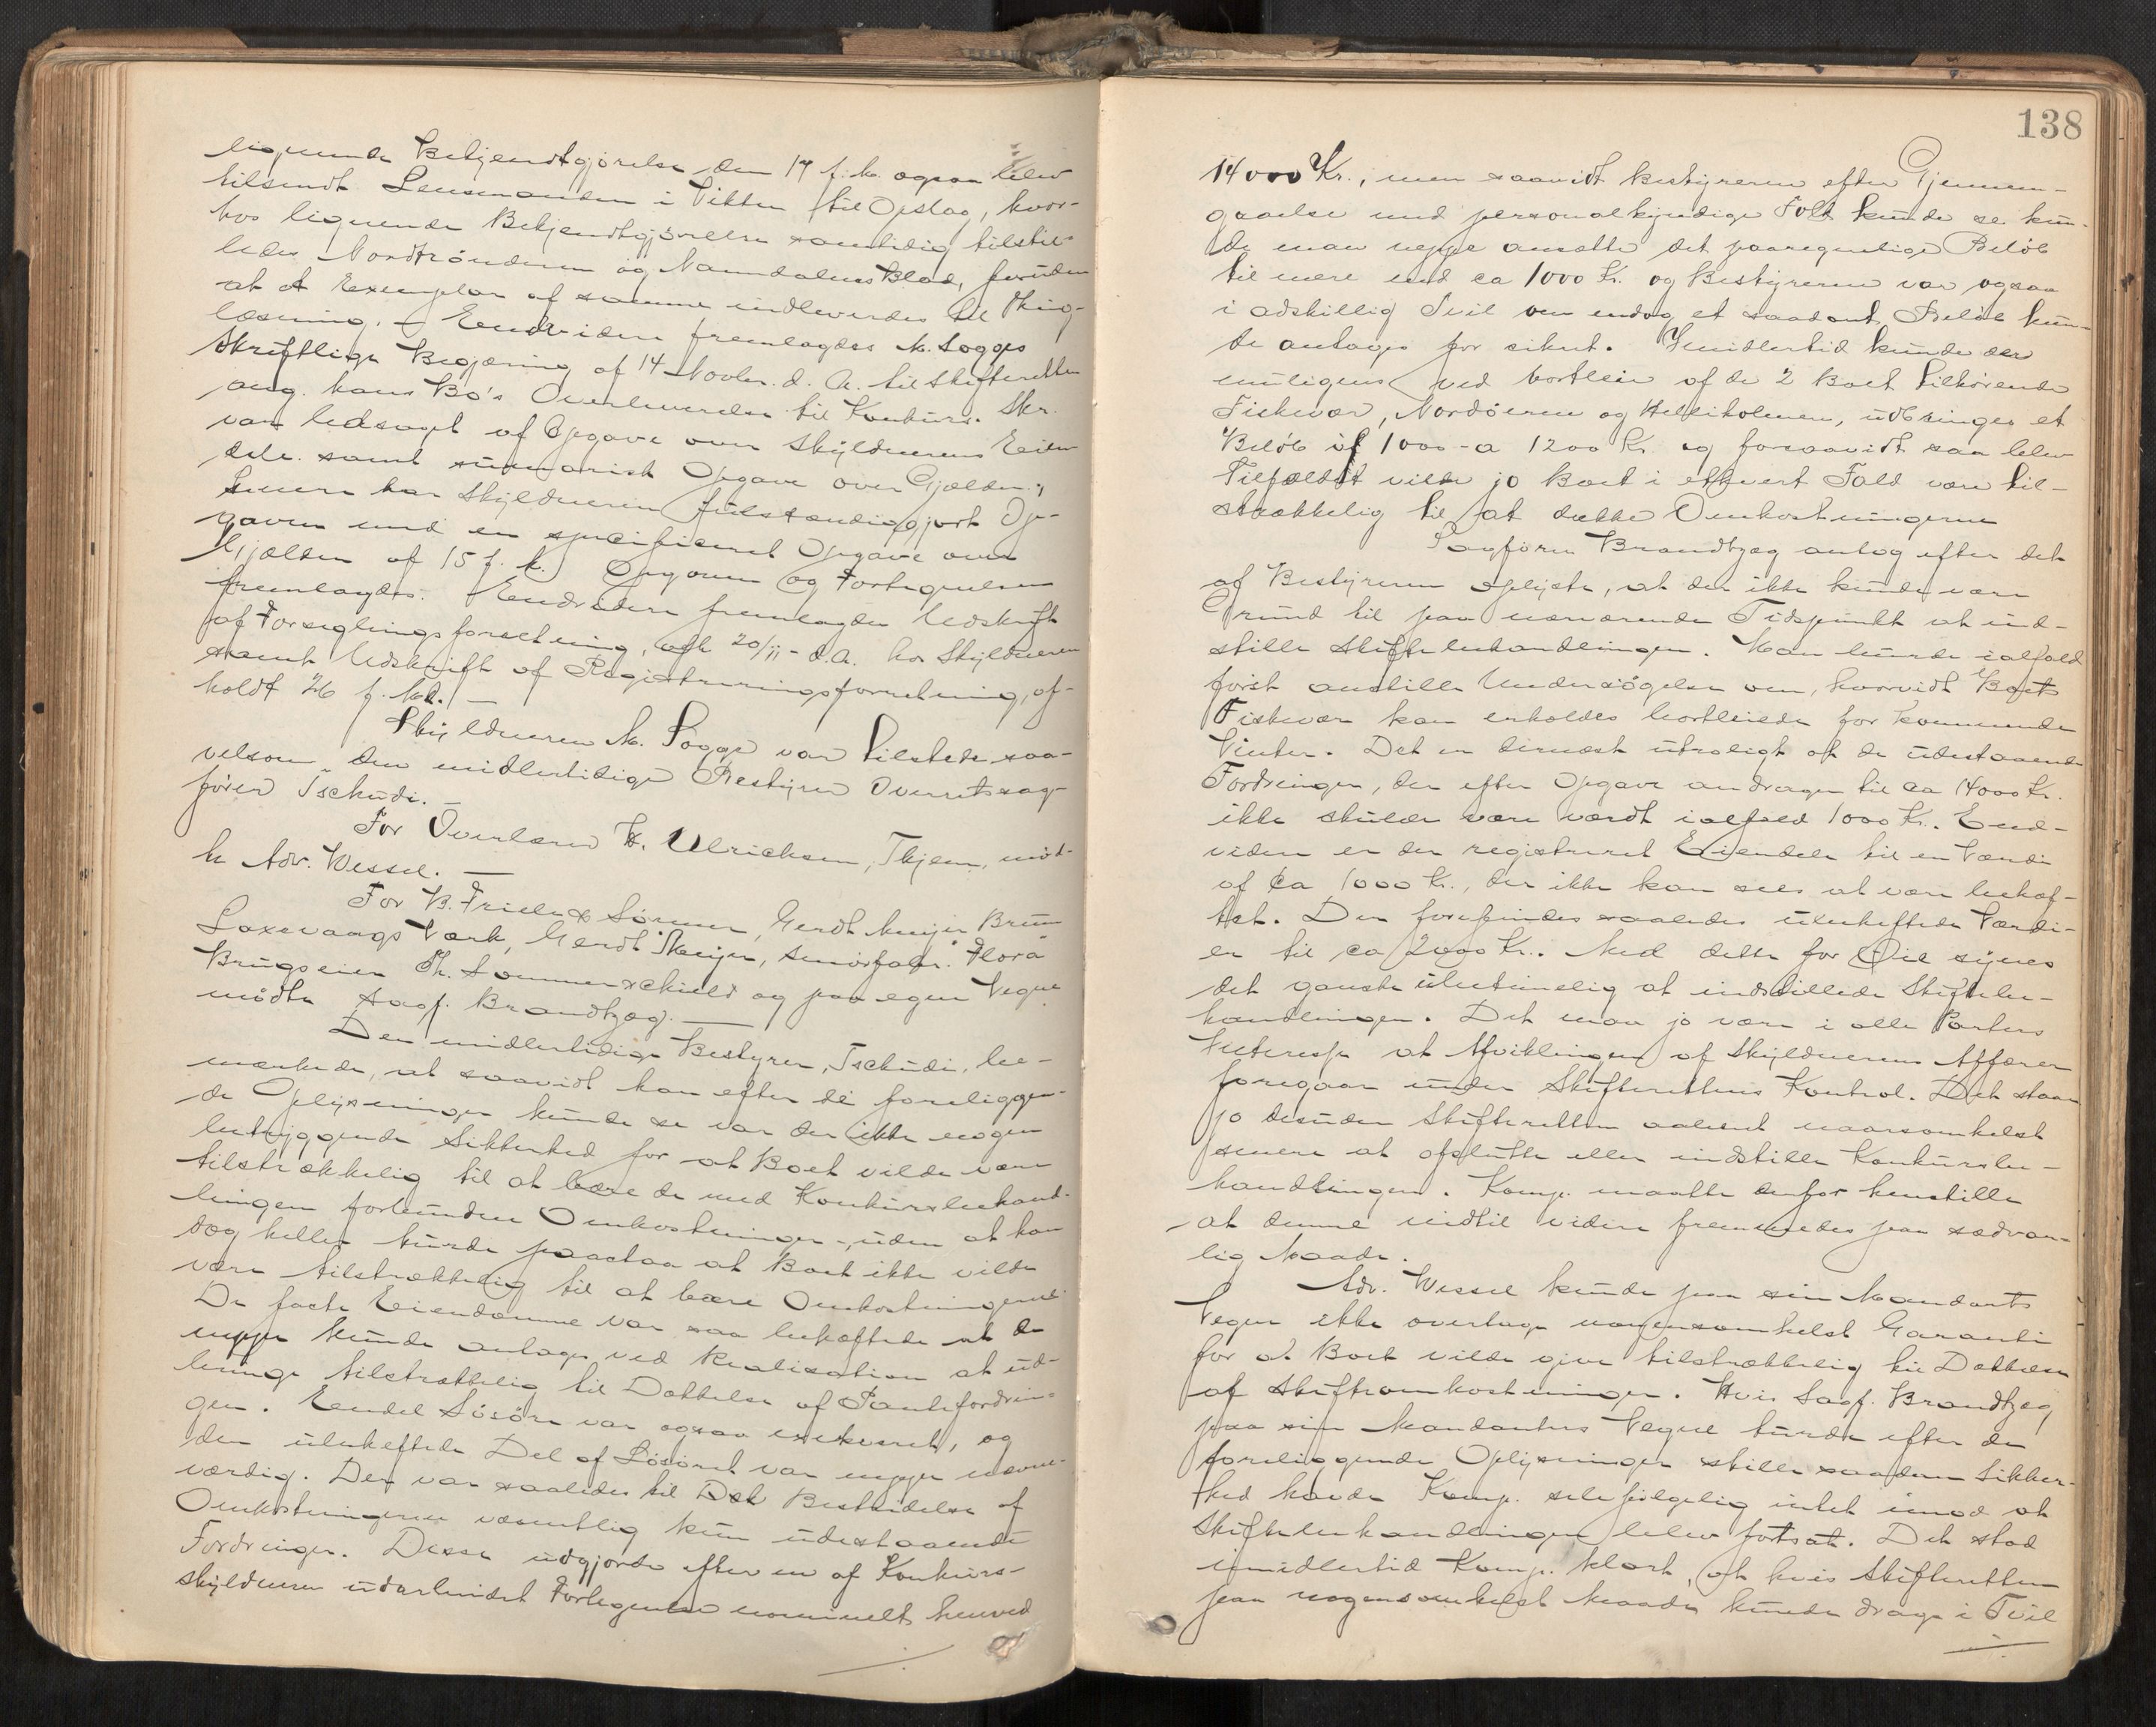 lignende Bekjendtgjørelse den 17 f. M. ogsaa blev
tilsendt Lensmanden i Vikten til Opslag, hvor-
hos lignende Bekjendtgjørelse samtidig tilstil-
ledes Nordtrønderen og Namdalens Blad, foruden
at et Exemplar af samme indleveredes til Thing-
læsning. – Endvidere fremlagdes M. Sogges
skriftlige Begjæring af 14 Novbr. d. A. til Skifteretten
ang. hans Bo's Overleverelse til Konkurs. Skr.
var ledsaget af Opgave over Skyldnerens Eien-
dele samt summarisk Opgave over Gjælden;
senere har Skyldneren fuldstændiggjort Op-
gaven med en specificeret Opgave over
Gjælden af 15 f. M. Opgaven og Fortegnelsen
fremlagdes. Endvidere fremlagdes Udskrift
af Forseglingsforretning, afh. 20/11 - d.A. hos Skyldneren
samt Udskrift af Registreringsforretning, af-
holdt 26 f. Md. –
Skyldneren M. Sogge var tilstede saa-
velsom den midlertidige Bestyrer Overretssag-
fører Tschudi. –
For Overlærer H. Ulrichsen, Thjem, mød-
te Adv. Wessel. –
For B. Friele & Sønner, Gerdt Meyer Bruun
Laxevaags Værk, Gerdt Meyer, Smørfabr. "Flora"
Brugseier Th. Sommerschield og paa egen Vegne
mødte Sagf. Brandtzæg. –
Den midlertidige Bestyrer, Tschudi, be-
mærkede, at saavidt han efter de foreliggen-
de Oplysninger kunde se var der ikke nogen
betryggende Sikkerhed for at Boet vilde være
tilstrækkelig til at bære de med Konkursbehand-
lingen forbundne Omkostninger –, uden at han
dog heller turde paastaa at Boet ikke vilde
være tilstrækkelig til at bære Omkostningerne.
De faste Eiendomme var saa behæftede at de
neppe kunde antages ved Realisation at ud-
bringe tilstrækkelig til Dækkelse af Pantefordrin-
gen. Endel Løsøre var ogsaa exekveret, og
den ubeheftede Del af Løsøret var neppe nævne-
værdig. Der var saaledes til Bestridelse af
Omkostningerne væsentlig kun udestaaende
Fordringer. Disse udgjorde efter en af Konkurs-
skyldneren udarbeidet Fortegnelse nominelt henved
138
14000 Kr., men saavidt Bestyreren efter Gjennem-
gaaelse med personalkyndige Folk kunde se kun-
de man neppe ansætte det paaregnelige Beløb
til mere end ca 1000 Kr. og Bestyreren var ogsaa
i adskillig Tvil om endog et saadant Beløb kun-
de antages for sikert. Imidlertid kunde der
muligens ved bortleie af de 2 Boet tilhørende
Fiskevær, Nordøerne og Helliholmen, udbringes et
Beløb af 1000 - a 1200 Kr. og forsaavidt saa blev
Tilfældet vilde jo Boet i ethvert Fald være til-
strækkelig til at dække Omkostningerne
Sagfører Brandtzæg antog efter det
af Bestyreren oplyste, at der ikke kunde være
Grund til paa nærværende Tidspunkt at ind-
stille Skiftebehandlingen. Man burde ialfald
først anstille Undersøgelser om, hvorvidt Boets
Fiskevær kan erholdes bortleiede for kommende
Vinter. Det er dernæst utroligt at de udestaaende
Fordringer, der efter Opgave andrager til ca 14000 Kr.
ikke skulde være værdt ialfald 1000 Kr. End-
videre er der registreret Eiendele til en Værdi
af ca 1000 Kr., der ikke kan sees at være behef-
tet. Der forefindes saaledes ubeheftede Værdi-
er til ca 2000 Kr.. Med dette for Øie synes
det ganske ubetimelig at indstillede Skiftebe-
handlingen. Det maa jo være i alle Parters
Interesse at Afviklingen af Skyldnerens Affærer
foregaar under Skifterettens Kontrol. Det staar
jo desuden Skifteretten aabent naarsomhelst
senere at afslutte eller indstille Konkursbe-
handlingen. Komp. maatte derfor henstille
at denne indtil videre fremmedes paa sædvan-
lig Maade.
Adv. Wessel kunde paa sin Mandants
Vegne ikke overtage nogensomhelst Garanti
for at Boet vilde give tilstrækkelig til Dækkelse
af Skifteomkostninger. Hvis Sagf. Brandtzæg
paa sine Mandanters Vegne turde efter de
foreliggende Oplysninger stille saadan Sikker-
hed havde Komp. selvfølgelig intet imod at
Skiftebehandlingen blev fortsat. Det stod
imidlertid Komp. klart, at hvis Skifteretten
paa nogensomhelst Maade kunde drage i Tvil